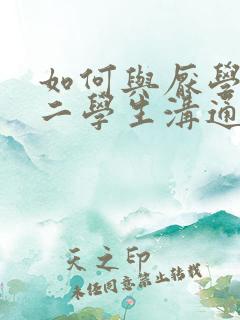 如何與厭學
二學生溝通
天之印
未經同意禁止轉載